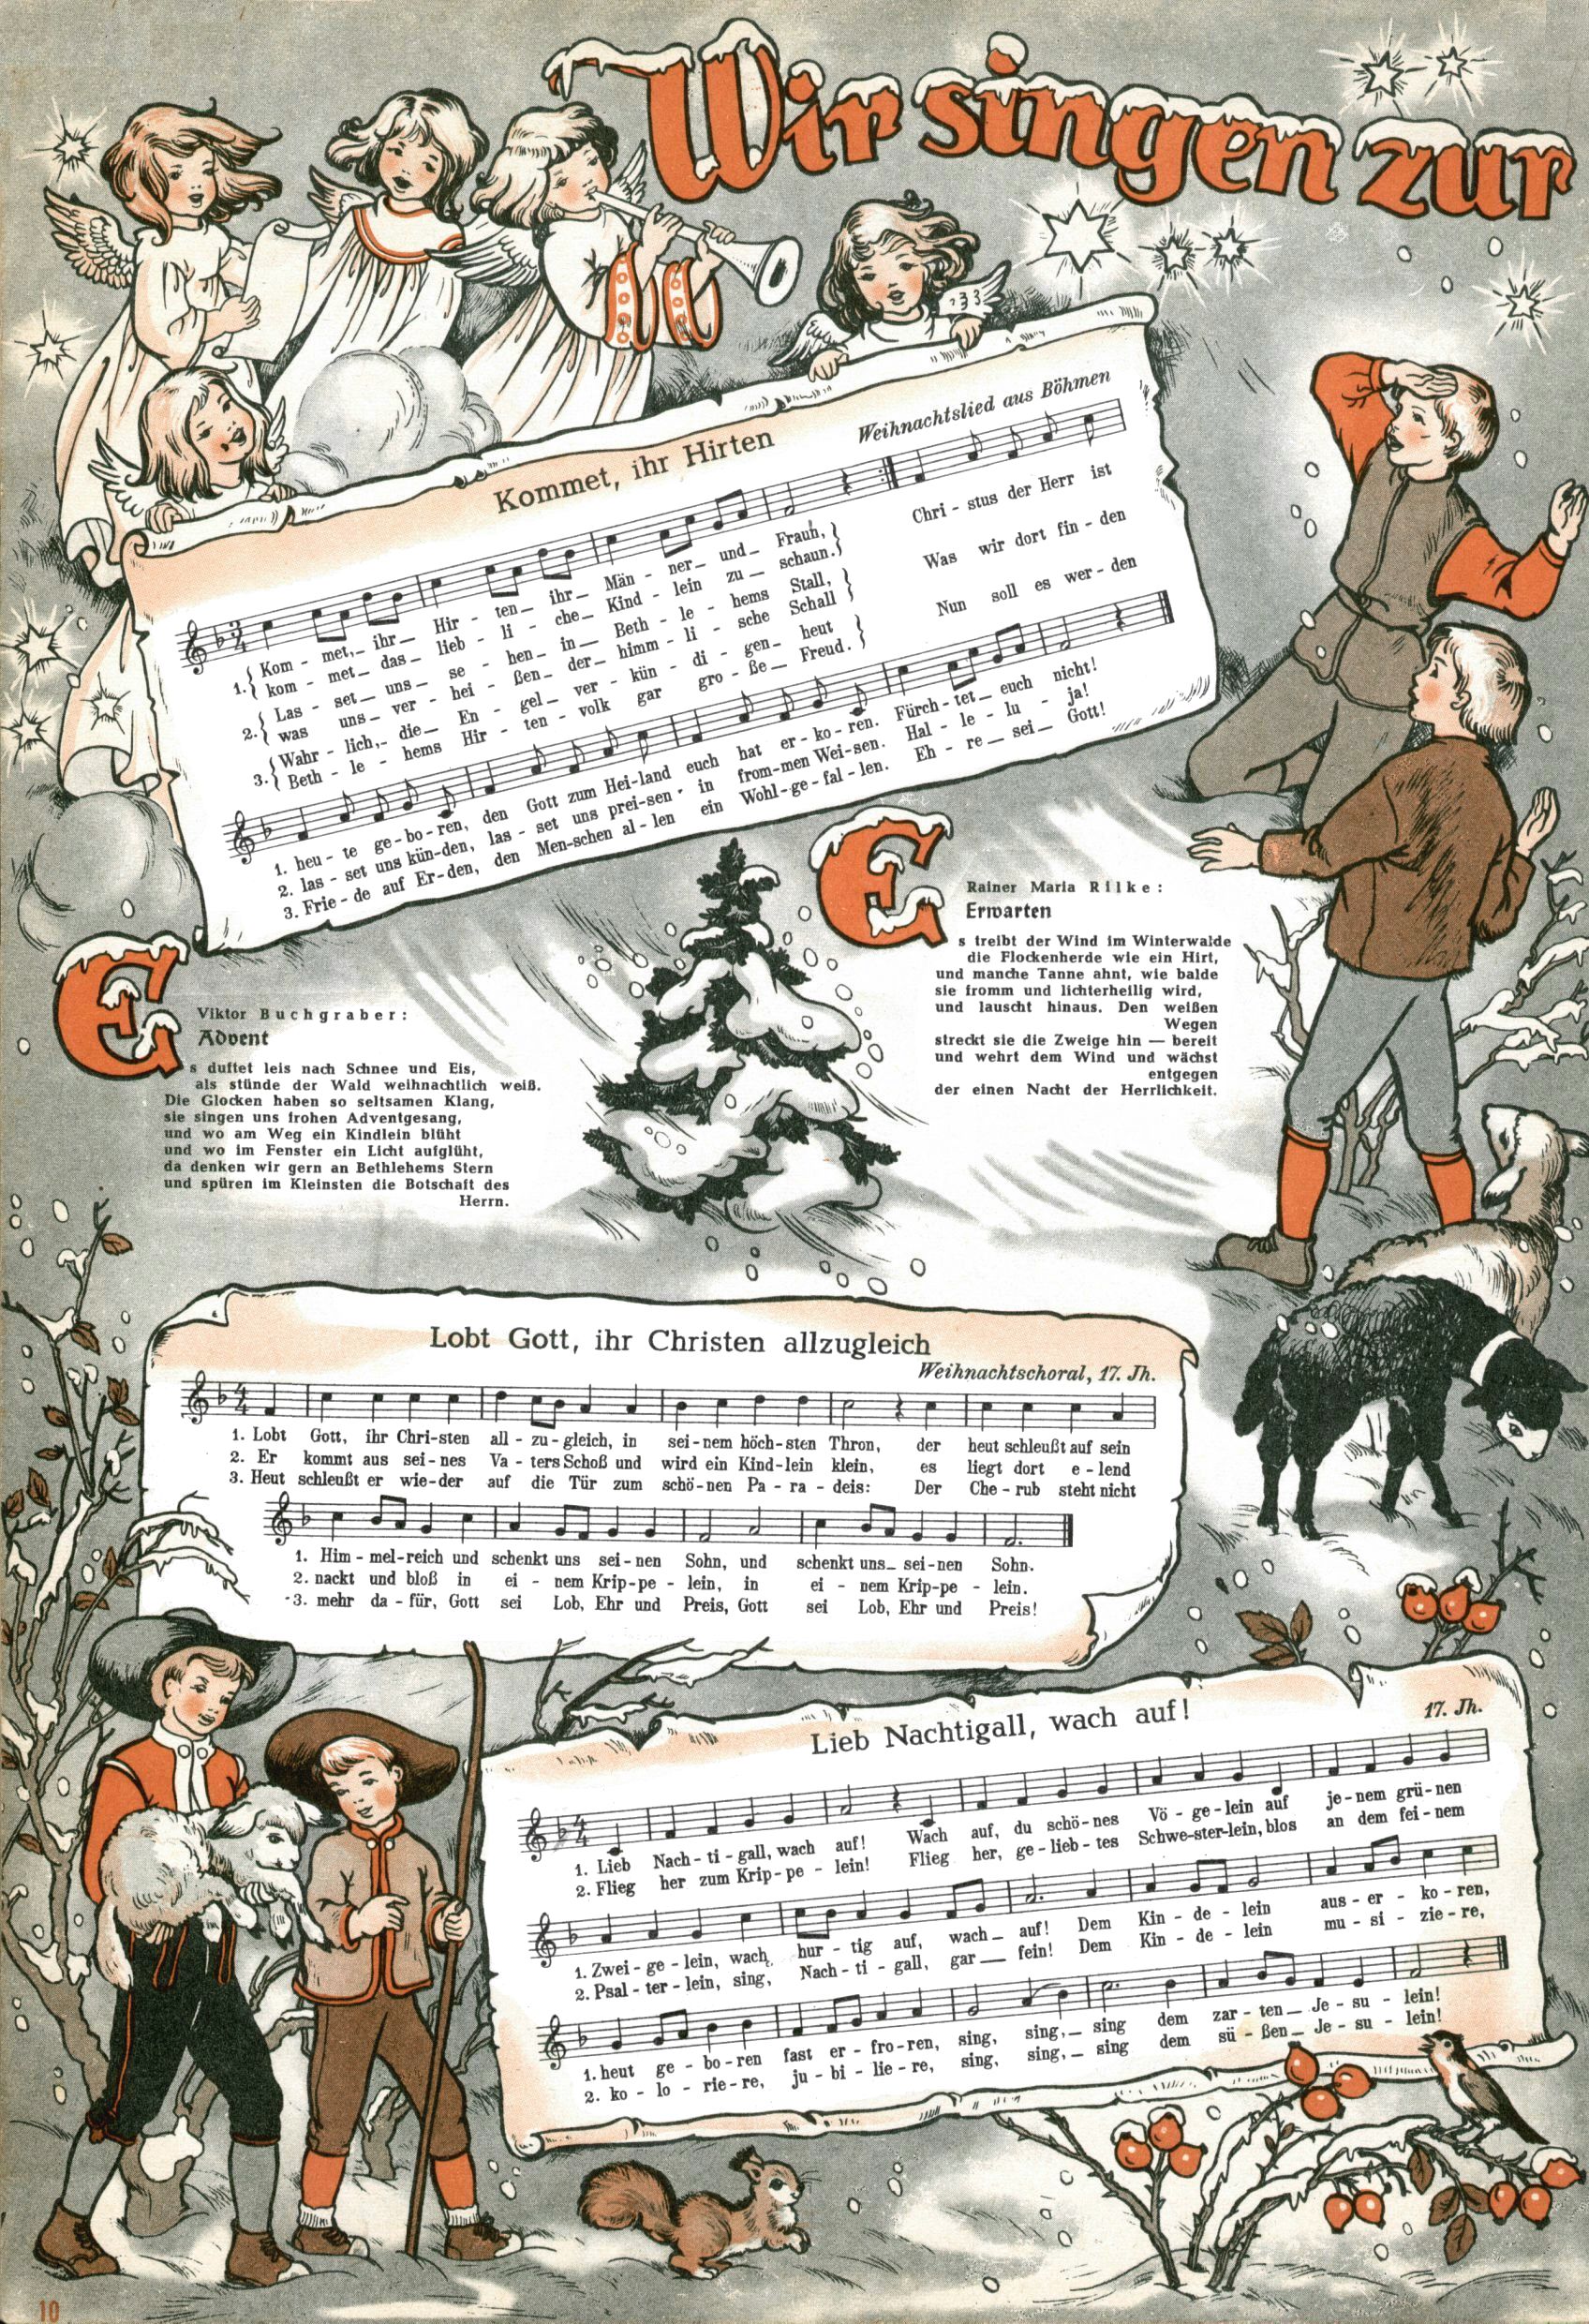 Wir singen zur
Kommet, ihr Hirten
Weihnachtslied aus Böhmen
1. { Kom - met, ihr Hir - ten ihr Män - ner und Fraun, } Chri - stus der Herr ist
kom - met das lieb - li - che Kind - lein zu schaun. }
2. { Las - set uns se - hen in Beth - le - hems Stall, } Was wir dort fin - den
was uns ver - hei - ßen der himm - li - sche Schall }
3. { Wahr - lich, die En - gel ver - kün - di - gen heut } Nun soll es wer - den
Beth - le - hems Hir - ten - volk gar gro - ße Freud. }
1. heu - te ge - bo - ren, den Gott zum Hei - land euch hat er - ko - ren. Fürch - tet euch nicht!
2. las - set uns kün - den, las - set uns prei - sen in from - men Wei - sen. Hal - le - lu - ja!
3. Frie - de auf Er - den, den Men - schen al - len ein Wohl - ge - fal - len. Eh - re sei Gott!
Viktor Buchgraber:
Advent
Es duftet leis nach Schnee und Eis,
als stünde der Wald weihnachtlich weiß.
Die Glocken haben so seltsamen Klang,
sie singen uns frohen Adventgesang,
und wo am Weg ein Kindlein blüht
und wo im Fenster ein Licht aufglüht,
da denken wir gern an Bethlehems Stern
und spüren im Kleinsten die Botschaft des
Herrn.
Rainer Maria Rilke:
Erwarten
Es treibt der Wind im Winterwalde
die Flockenherde wie ein Hirt,
und manche Tanne ahnt, wie balde
sie fromm und lichterheilig wird,
und lauscht hinaus. Den weißen
Wegen
streckt sie die Zweige hin — bereit
und wehrt dem Wind und wächst
entgegen
der einen Nacht der Herrlichkeit.
Lobt Gott, ihr Christen allzugleich
Weihnachtschoral, 17. Jh.
1. Lobt Gott, ihr Chri - sten all - zu - gleich, in sei - nem höch - sten Thron, der heut schleußt auf sein
2. Er kommt aus sei - nes Va - ters Schoß und wird ein Kind - lein klein, es liegt dort e - lend
3. Heut schleußt er wie - der auf die Tür zum schö - nen Pa - ra - deis: Der Che - rub steht nicht
1. Him - mel - reich und schenkt uns sei - nen Sohn, und schenkt uns sei - nen Sohn.
2. nackt und bloß in ei - nem Krip - pe - lein, in ei - nem Krip - pe - lein.
3. mehr da - für, Gott sei Lob, Ehr und Preis, Gott sei Lob, Ehr und Preis!
Lieb Nachtigall, wach auf!
17. Jh.
1. Lieb Nach - ti - gall, wach auf! Wach auf, du schö - nes Vö - ge - lein auf je - nem grü - nen
2. Flieg her zum Krip - pe - lein! Flieg her, ge - lieb - tes Schwe - ster - lein, blos an dem fei - nem
1. Zwei - ge - lein, wach hur - tig auf, wach auf! Dem Kin - de - lein aus - er - ko - ren,
2. Psal - ter - lein, sing, Nach - ti - gall, gar fein! Dem Kin - de - lein mu - si - zie - re,
1. heut ge - bo - ren fast er - fro - ren, sing, sing, sing dem zar - ten Je - su - lein!
2. ko - lo - rie - re, ju - bi - lie - re, sing, sing, sing dem sü - ßen Je - su - lein!
10